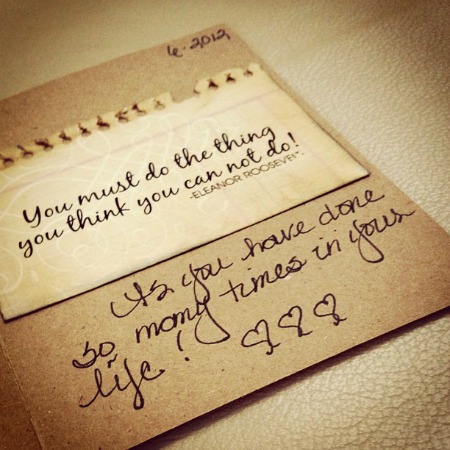 6.2012
You must do the thing
you think you can not do!
-ELEANOR ROOSEVELT-
As you have done
so many times in your
life!